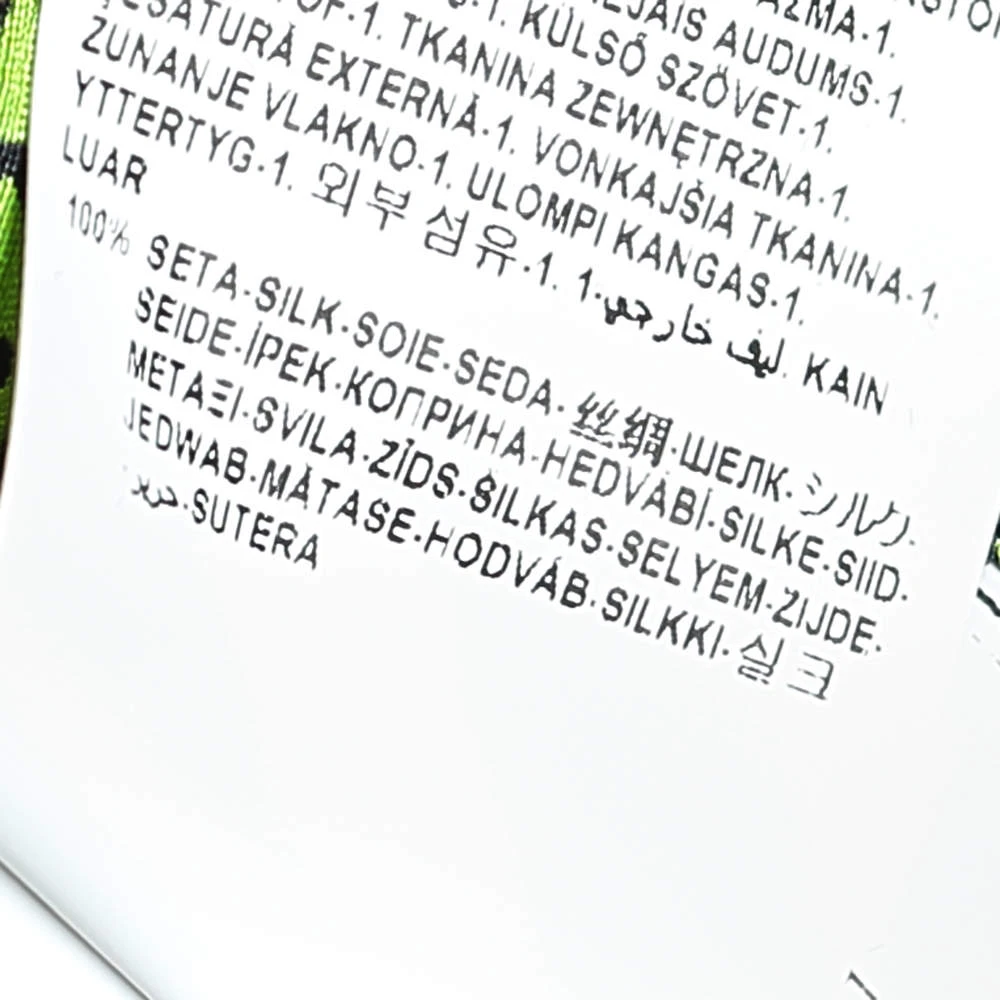 AUDUMS·1.
KÜLSŐ SZÖVET·1.
1. TKANINA ZEWNĘTRZNA·1.
EXTERNĂ·1. VONKAJŠIA TKANINA·1.
ZUNANJE VLAKNO·1. ULOMPI KANGAS·1.
YTTERTYG·1. 외부 섬유·1. 1·ليف خارجي. KAIN
LUAR
100% SETA·SILK·SOIE·SEDA·丝绸·ШЕЛК·シルク·
SEIDE·İPEK·КОПРИНА·HEDVÁBÍ·SILKE·SIID·
ΜΕΤΑΞΙ·SVILA·ZĪDS·ŠILKAS·SELYEM·ZIJDE·
JEDWAB·MĂTASE·HODVÁB·SILKKI·실크
حرير·SUTERA